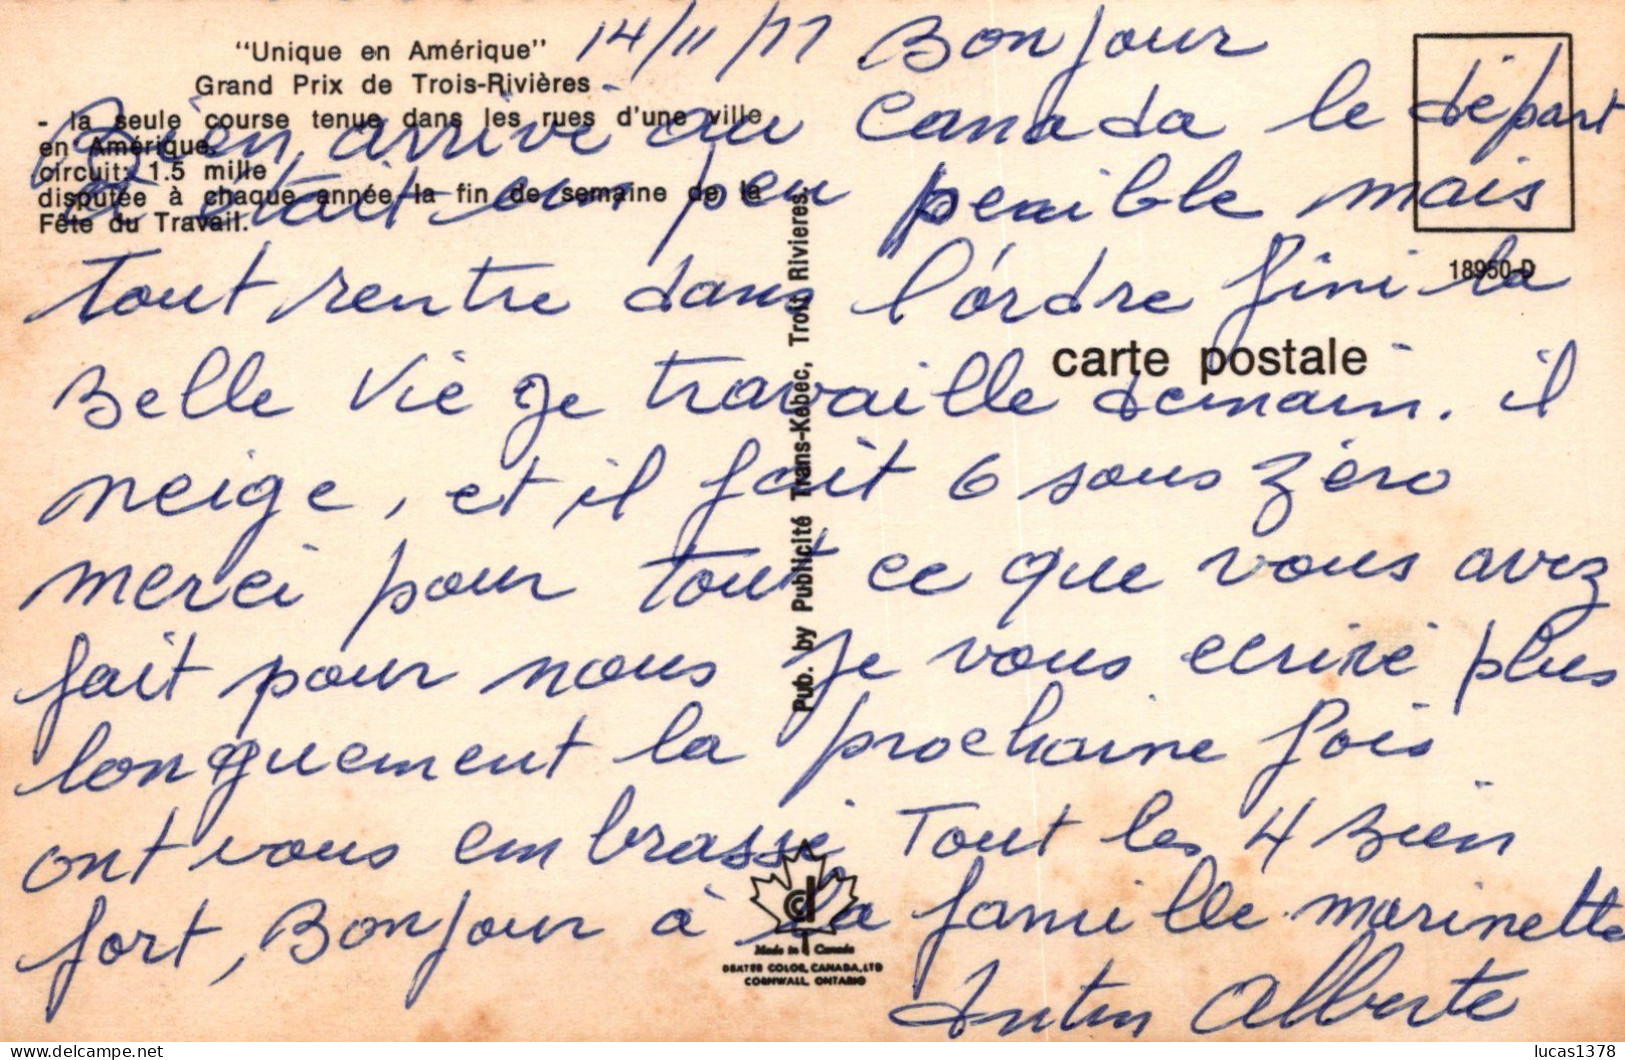 "Unique en Amérique"
Grand Prix de Trois-Rivières
- la seule course tenue dans les rues d'une ville
en Amérique.
circuit: 1.5 mille
disputée à chaque année la fin de semaine de la
Fête du Travail.
18950-D
carte postale
Pub. by Publicité Trans-Kébec, Trois Rivieres.
14/11/77 Bonjour
Bien, arrivé au Canada le départ
a était un peu penible mais
tout rentre dans l'ordre fini la
Belle Vie Je travaille demain. il
neige, et il fait 6 sous zéro
merci pour tout ce que vous avez
fait pour nous Je vous ecrire plus
longuement la prochaine fois
ont vous embrasse Tout les 4 Bien
fort, Bonjour à la famille marinette
Alberte
Made in Canada
DEXTER COLOR, CANADA, LTD
CORNWALL, ONTARIO
lucas1378